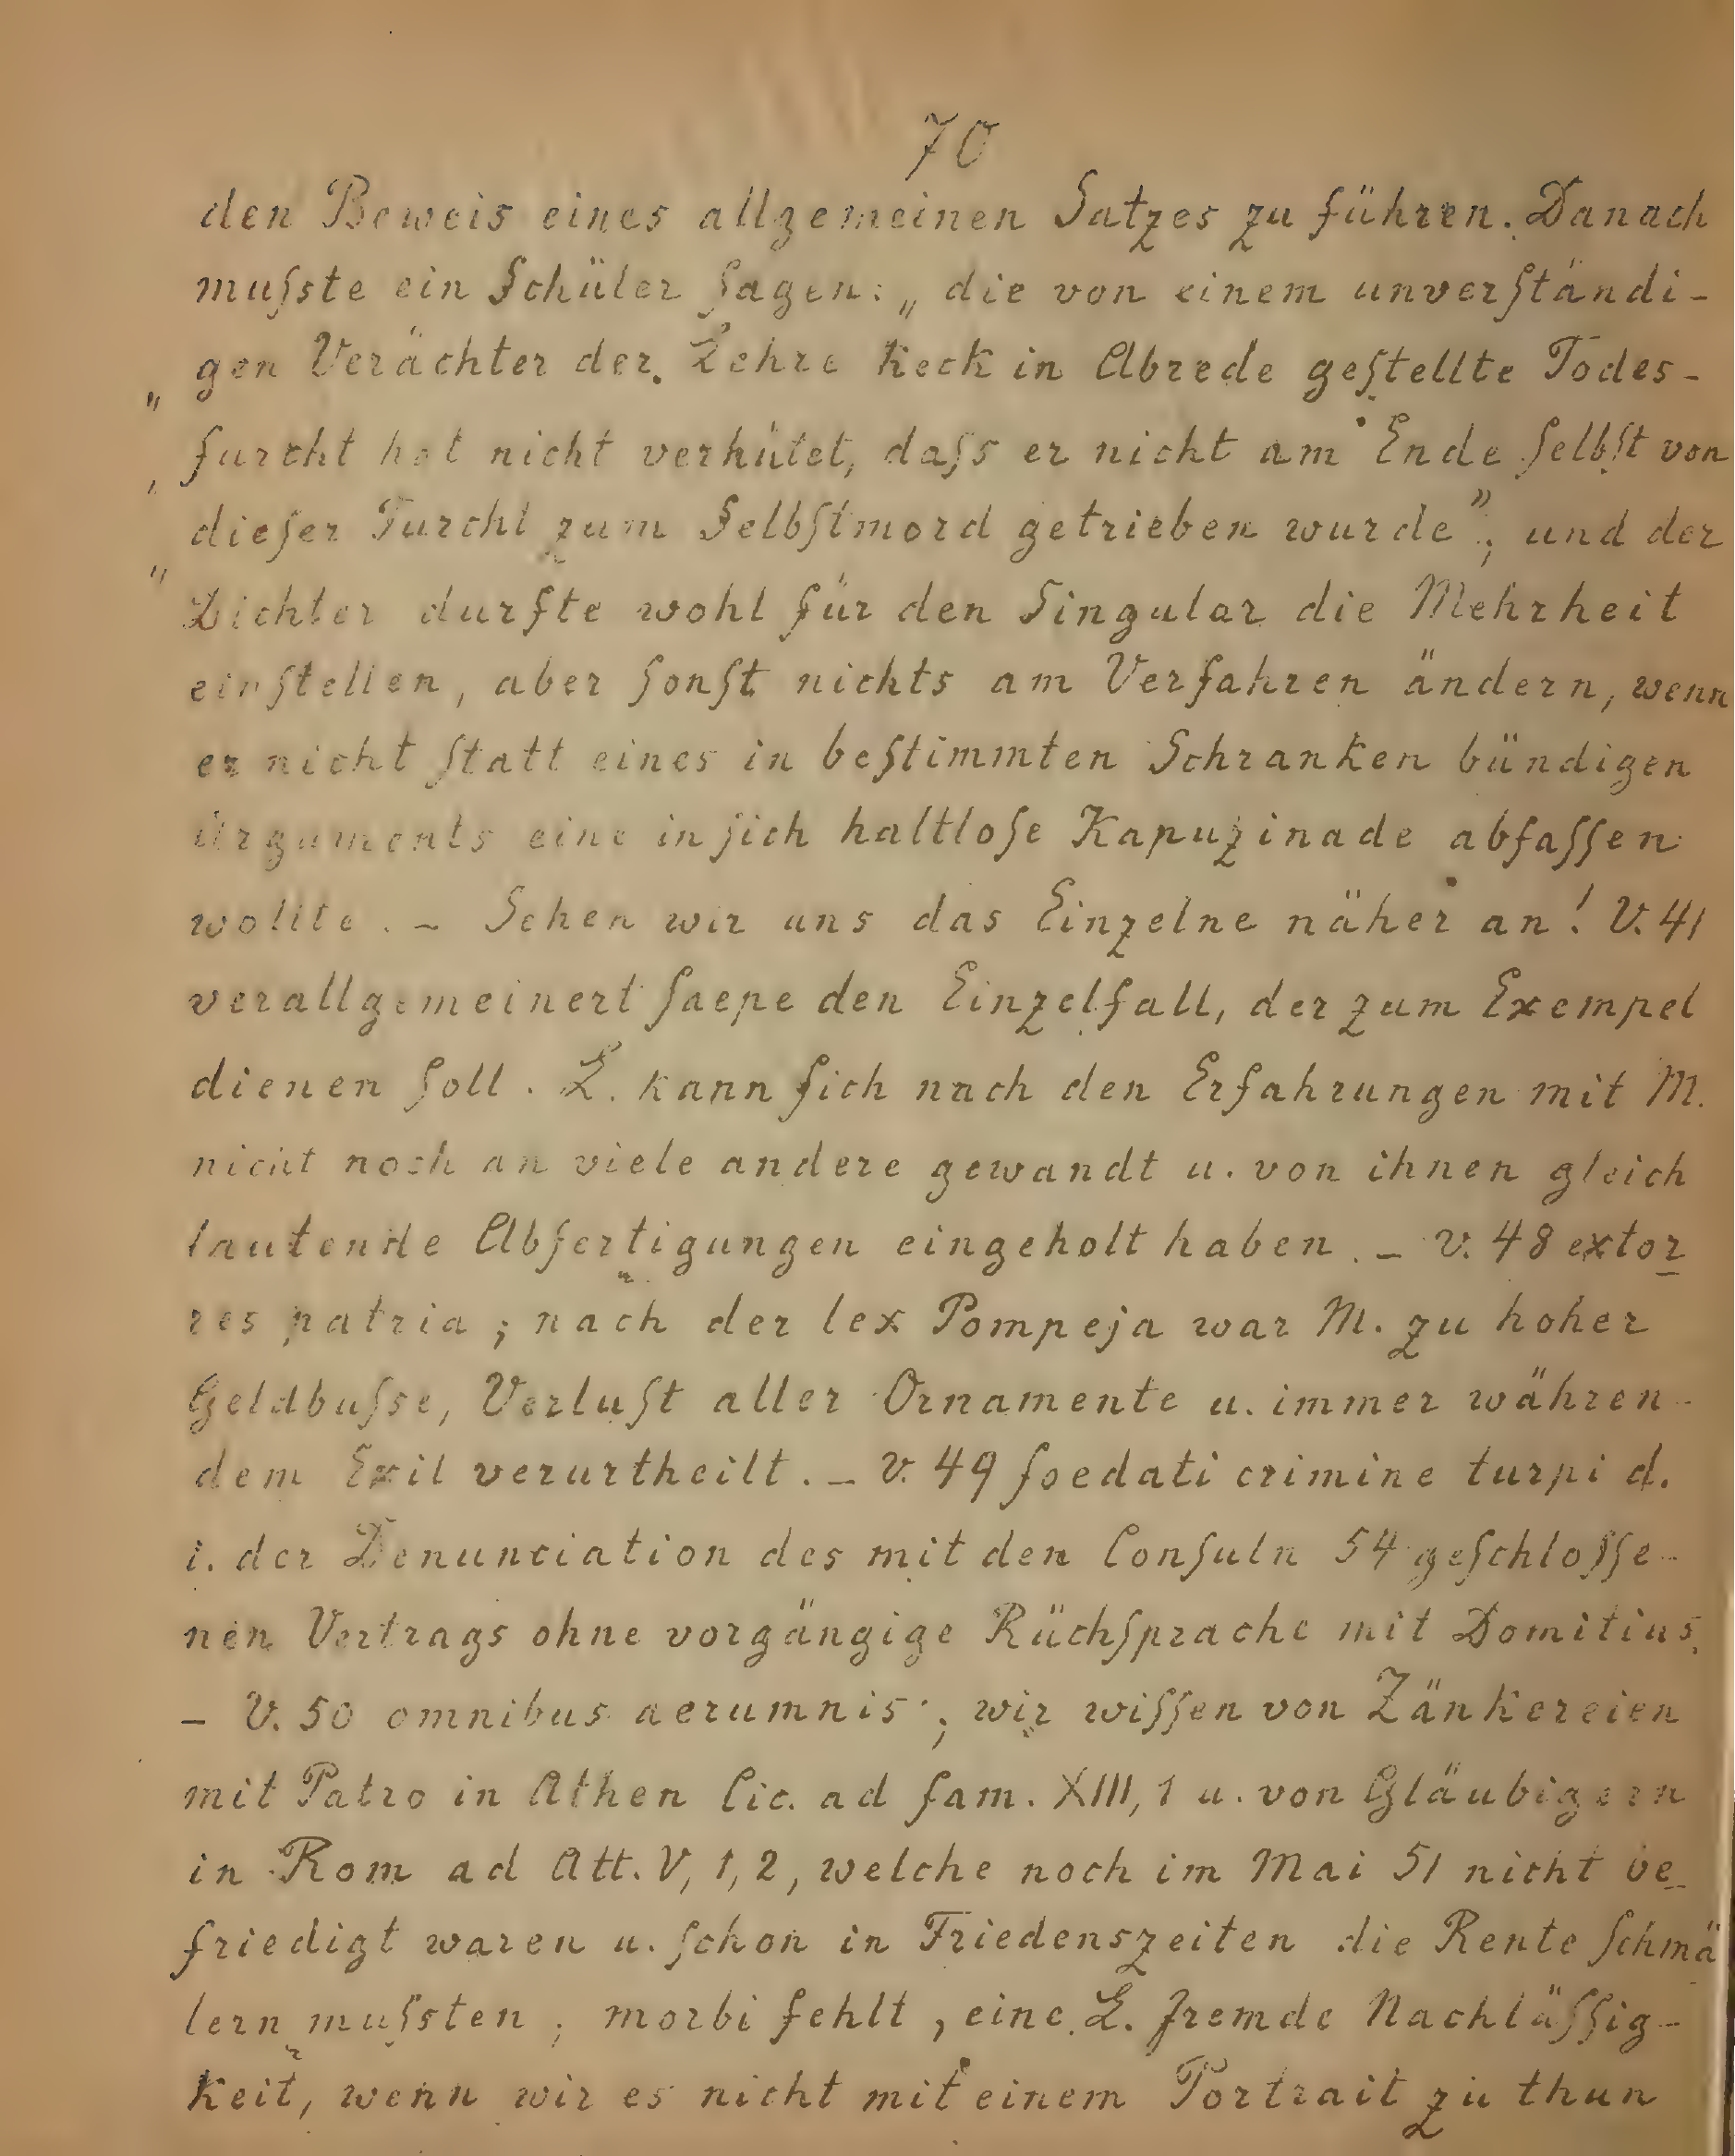 70
den Beweis eines allgemeinen Satzes zu führen. Danach
muſste ein Schüler ſagen: „die von einem unverſtändi-
„ gen Verächter der Lehre keck in Abrede geſtellte Todes-
„ furcht hat nicht verhütet, daſs er nicht am Ende ſelbſt von
„ dieſer Furcht zum Selbſtmord getrieben wurde"; und der
Dichter durfte wohl für den Singular die Mehrheit
einſtellen, aber ſonſt nichts am Verfahren ändern, wenn
er nicht ſtatt eines in beſtimmten Schranken bündigen
Arguments eine in ſich haltloſe Kapuzinade abfaſſen
wollte. – Sehen wir uns das Einzelne näher an! V. 41
verallgemeinert ſaepe den Einzelfall, der zum Exempel
dienen ſoll. L. kann ſich nach den Erfahrungen mit M.
nicht noch an viele andere gewandt u. von ihnen gleich
lautende Abfertigungen eingeholt haben. – v. 48 extor
res patria; nach der lex Pompeja war M. zu hoher
Geldbuſse, Verluſt aller Ornamente u. immer währen-
dem Exil verurtheilt. – v. 49 foedati crimine turpi d.
i. der Denunciation des mit den Conſuln 54 geſchloſſe-
nen Vertrags ohne vorgängige Rückſprache mit Domitius.
– V. 50 omnibus aerumnis; wir wiſſen von Zänkereien
mit Patro in Athen Cic. ad fam. XIII, 1 u. von Gläubigern
in Rom ad Att. V, 1, 2, welche noch im Mai 51 nicht be-
friedigt waren u. ſchon in Friedenszeiten die Rente ſchmä
lern muſsten; morbi fehlt, eine L. fremde Nachläſſig-
keit, wenn wir es nicht mit einem Portrait zu thun